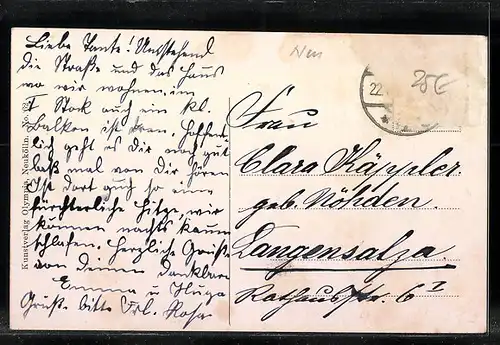 Liebe Tante! Umstehend
die Straße und das Haus
wo wir wohnen, im
I Stock auch ein kl.
Balkon ist dran. Hoffent
lich geht es Dir noch gut
laß mal von Dir hören
Ist dort auch so eine
fürchterliche Hitze, wir
können nachts kaum
schlafen. Herzliche Grüße
von deinen dankbaren
Emma u Hugo
Grüße bitte Frl. Rosa
Kunstverlag Olympia, Neukölln. No. 62
22.
25€
Frau
Clara Käppler
geb. Nöhden.
Langensalza.
Rathausstr. 6 I